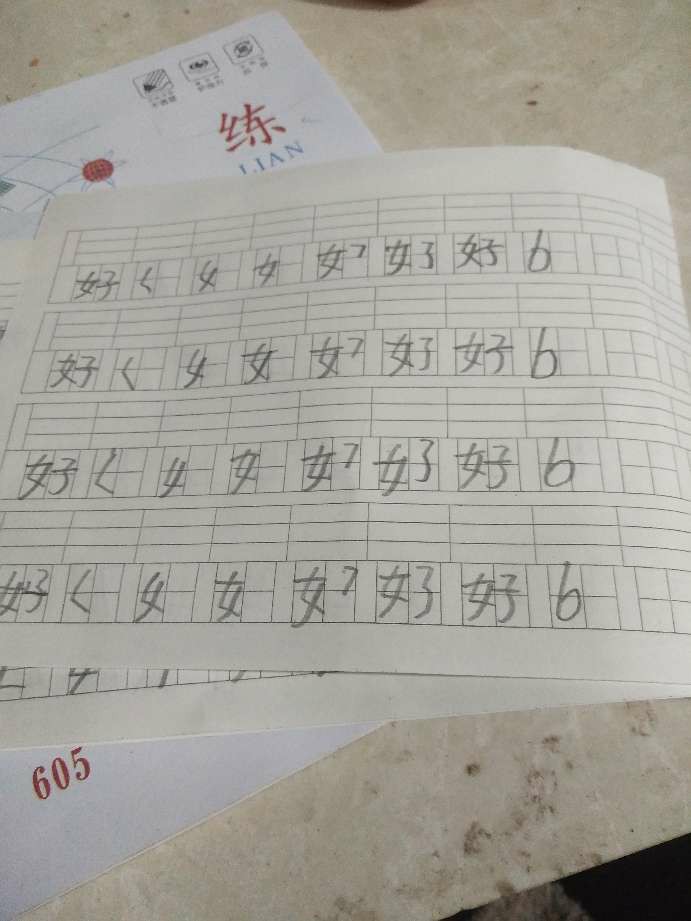 练
LIAN
好 く 女 女 女フ 女了 好 6
好 く 女 女 女フ 女了 好 6
好 く 女 女 女フ 女了 好 6
好 く 女 女 女フ 女了 好 6
605